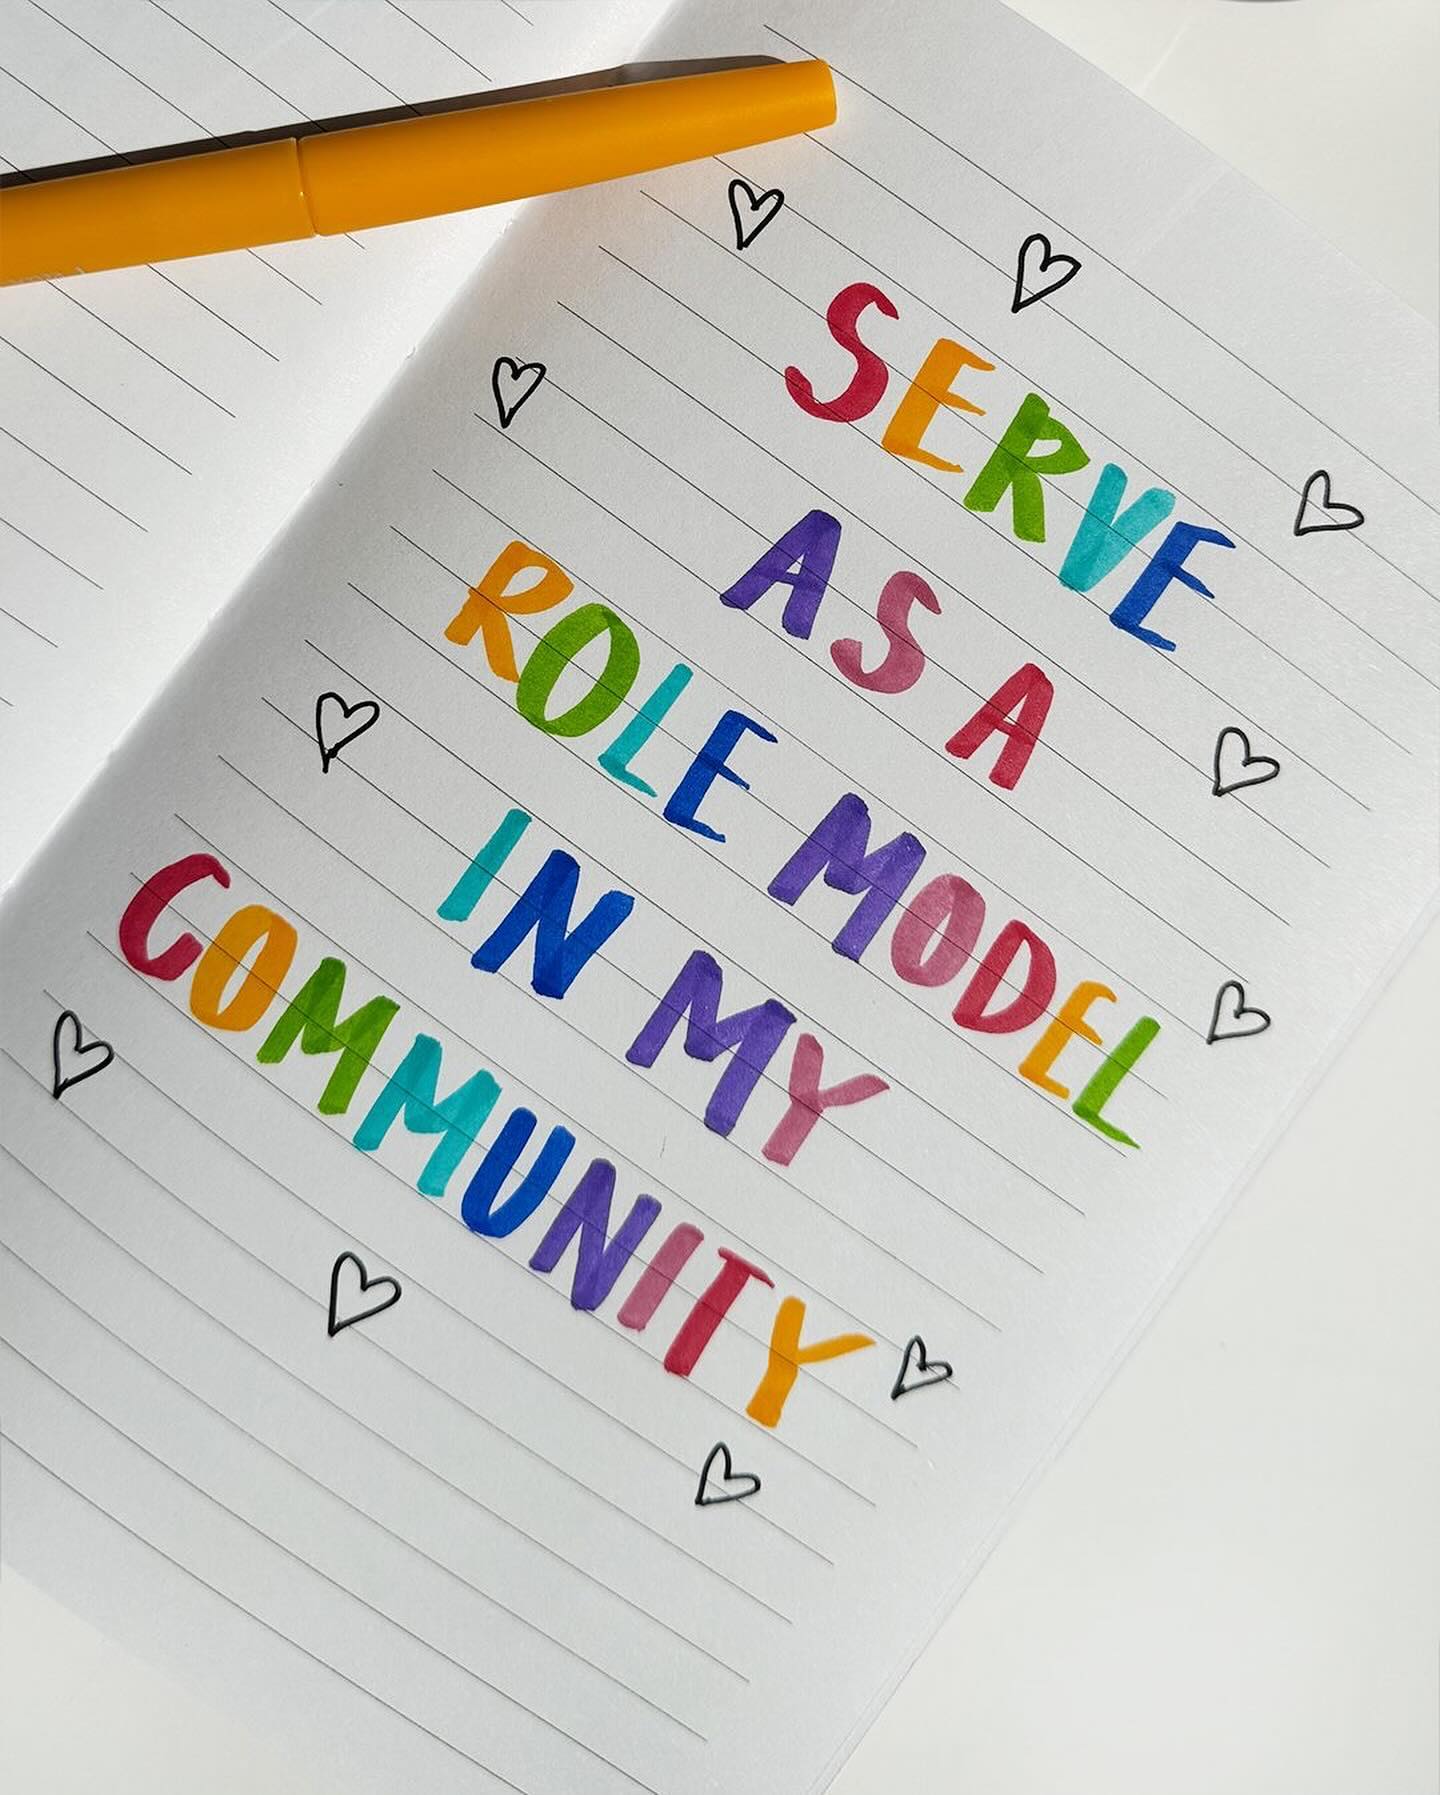 SERVE
AS A
ROLE MODEL
IN MY
COMMUNITY